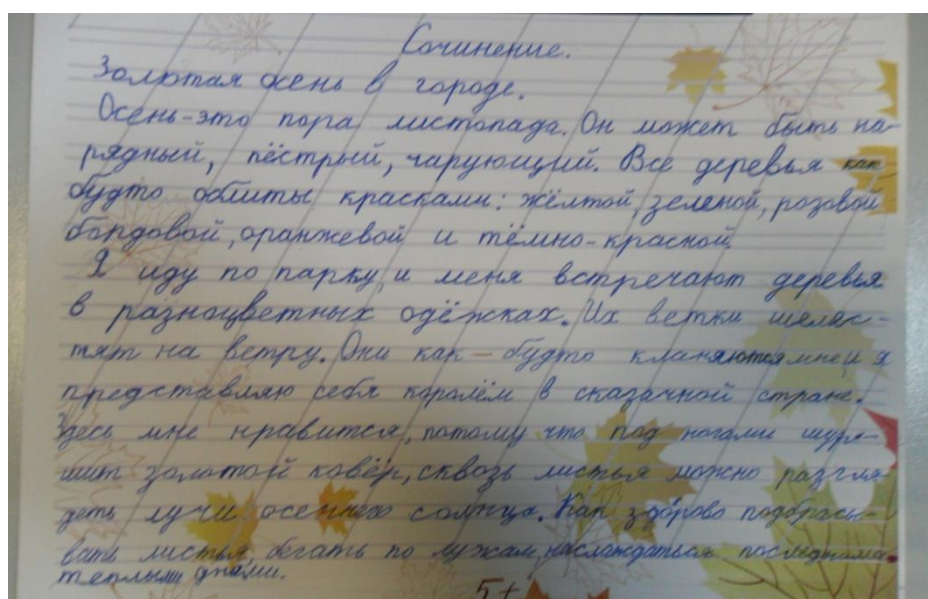 Сочинение.
Золотая осень в городе.
Осень-это пора листопада. Он может быть на-
рядный, пёстрый, чарующий. Все деревья как
будто облиты красками: жёлтой, зеленой, розовой
бордовой, оранжевой и тёмно-красной.
Я иду по парку, и меня встречают деревья
в разноцветных одёжках. Их ветки шелес-
тят на ветру. Они как-будто кланяются мне и я
представляю себя королём в сказачной стране.
Здесь мне нравится, потому что под ногами шур-
шит золотой ковёр, сквозь листья можно разгля-
деть лучи осеннего солнца. Как здорово подбрасы-
вать листья, бегать по лужам, наслаждаться последними
теплыми днями.
5+